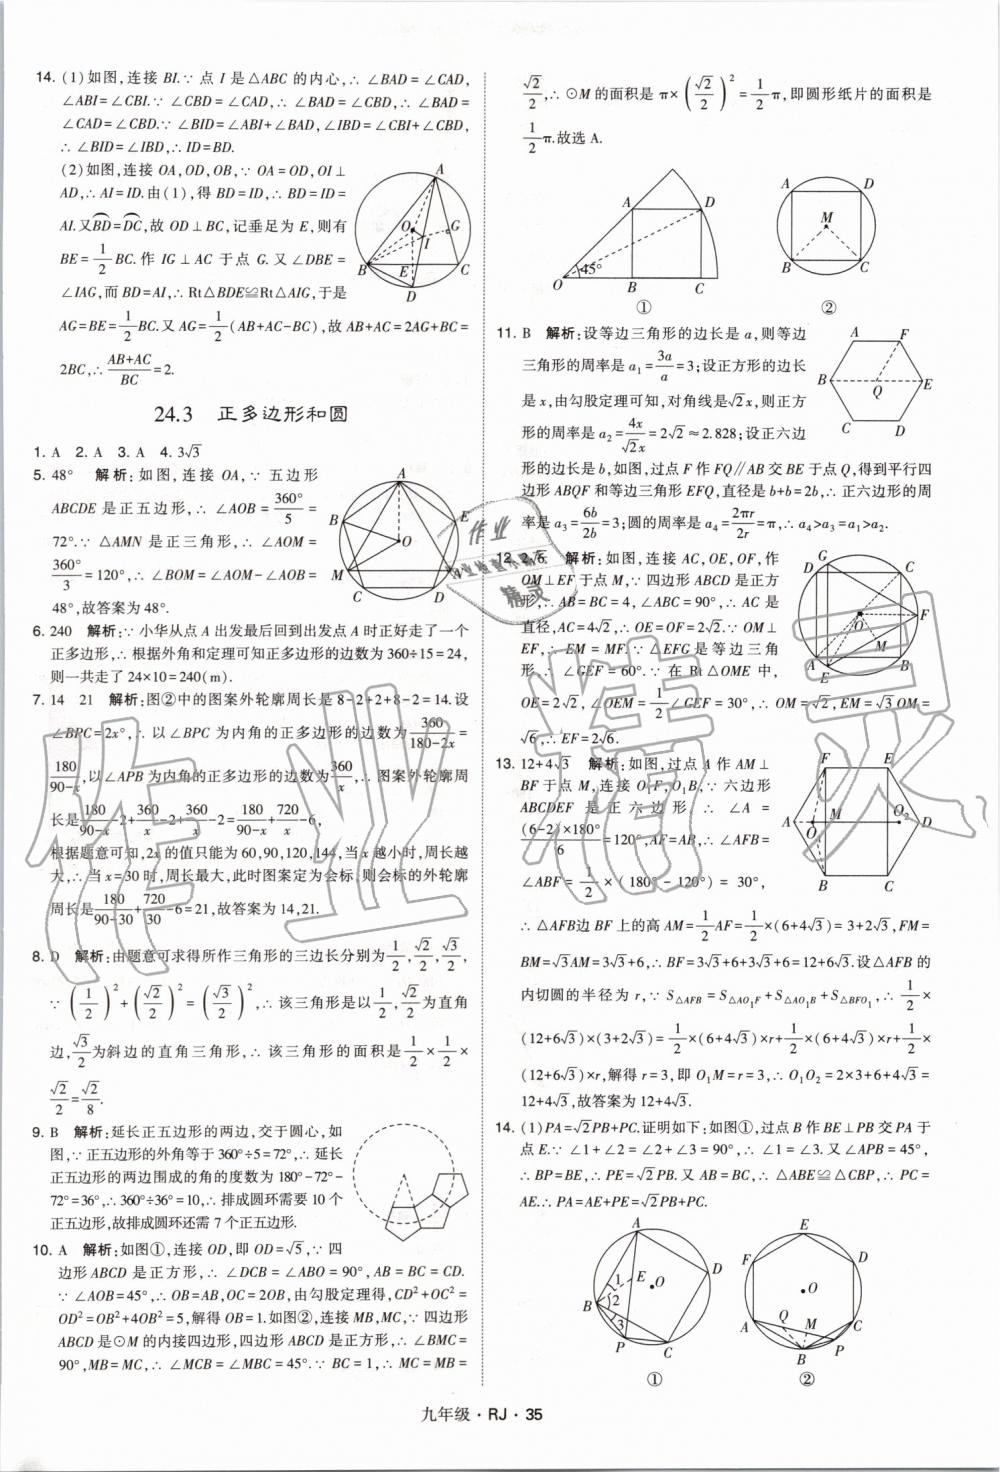 14. (1)如图,连接 BI.∵ 点 I 是△ABC 的内心,∴ ∠BAD=∠CAD,
∠ABI=∠CBI.∵ ∠CBD=∠CAD,∴ ∠BAD=∠CBD,∴ ∠BAD=
∠CAD=∠CBD.∵ ∠BID=∠ABI+∠BAD,∠IBD=∠CBI+∠CBD,
∴ ∠BID=∠IBD,∴ ID=BD.
(2)如图,连接 OA,OD,OB,∵ OA=OD,OI⊥
AD,∴ AI=ID.由(1),得 BD=ID,∴ BD=ID=
AI.又BD=DC,故 OD⊥BC,记垂足为 E,则有
BE=1/2 BC.作 IG⊥AC 于点 G.又∠DBE=
∠IAG,而 BD=AI,∴ Rt△BDE≌Rt△AIG,于是
AG=BE=1/2 BC.又 AG=1/2(AB+AC-BC),故 AB+AC=2AG+BC=
2BC,∴ (AB+AC)/BC=2.
A
O
G
I
B
E
C
D
24.3 正多边形和圆
1. A 2. A 3. A 4. 3√3
5. 48° 解析:如图,连接 OA,∵ 五边形
ABCDE 是正五边形,∴ ∠AOB=360°/5=
72°.∵ △AMN 是正三角形,∴ ∠AOM=
360°/3=120°,∴ ∠BOM=∠AOM-∠AOB=
48°,故答案为 48°.
A
B
E
O
M
C
D
6. 240 解析:∵ 小华从点 A 出发最后回到出发点 A 时正好走了一个
正多边形,∴ 根据外角和定理可知正多边形的边数为 360÷15=24,
则一共走了 24×10=240(m).
7. 14 21 解析:图②中的图案外轮廓周长是 8-2+2+8-2=14.设
∠BPC=2x°,∴ 以∠BPC 为内角的正多边形的边数为360/(180-2x)=
180/(90-x),以∠APB 为内角的正多边形的边数为360/x,∴ 图案外轮廓周
长是180/(90-x)-2+360/x-2+360/x-2=180/(90-x)+720/x-6,
根据题意可知,2x 的值只能为 60,90,120,144,当 x 越小时,周长越
大,∴ 当 x=30 时,周长最大,此时图案定为会标,则会标的外轮廓
周长是180/(90-30)+720/30-6=21,故答案为 14,21.
8. D 解析:由题意可求得所作三角形的三边长分别为1/2,√2/2,√3/2,
∵ (1/2)²+(√2/2)²=(√3/2)²,∴ 该三角形是以1/2,√2/2为直角
边,√3/2为斜边的直角三角形,∴ 该三角形的面积是1/2×1/2×
√2/2=√2/8.
9. B 解析:延长正五边形的两边,交于圆心,如
图,∵ 正五边形的外角等于 360°÷5=72°,∴ 延长
正五边形的两边围成的角的度数为 180°-72°-
72°=36°,∴ 360°÷36°=10,∴ 排成圆环需要 10 个
正五边形,故排成圆环还需 7 个正五边形.
10. A 解析:如图①,连接 OD,即 OD=√5,∵ 四
边形 ABCD 是正方形,∴ ∠DCB=∠ABO=90°,AB=BC=CD.
∵ ∠AOB=45°,∴ OB=AB,OC=2OB,由勾股定理得,CD²+OC²=
OD²=OB²+4OB²=5,解得 OB=1.如图②,连接 MB,MC,∵ 四边形
ABCD 是⊙M 的内接四边形,四边形 ABCD 是正方形,∴ ∠BMC=
90°,MB=MC,∴ ∠MCB=∠MBC=45°.∵ BC=1,∴ MC=MB=
√2/2,∴ ⊙M 的面积是 π×(√2/2)²=1/2π,即圆形纸片的面积是
1/2π.故选 A.
A
D
45°
O
B
C
①
A
D
M
B
C
②
11. B 解析:设等边三角形的边长是 a,则等边
三角形的周率是 a₁=3a/a=3;设正方形的边长
是 x,由勾股定理可知,对角线是√2x,则正方
形的周率是 a₂=4x/√2x=2√2≈2.828;设正六边
形的边长是 b,如图,过点 F 作 FQ∥AB 交 BE 于点 Q,得到平行四
边形 ABQF 和等边三角形 EFQ,直径是 b+b=2b,∴ 正六边形的周
率是 a₃=6b/2b=3;圆的周率是 a₄=2πr/2r=π,∴ a₄>a₃=a₁>a₂.
A
F
B
Q
E
C
D
12. 2√6 解析:如图,连接 AC,OE,OF,作
OM⊥EF 于点 M,∵ 四边形 ABCD 是正方
形,∴ AB=BC=4,∠ABC=90°,∴ AC 是
直径,AC=4√2,∴ OE=OF=2√2.∵ OM⊥
EF,∴ EM=MF.∵ △EFG 是等边三角
形,∴ ∠GEF=60°.∵ 在 Rt△OME 中,
OE=2√2,∠OEM=1/2∠GEF=30°,∴ OM=√2,EM=√3OM=
√6,∴ EF=2√6.
G
D
C
O
F
M
A
E
B
13. 12+4√3 解析:如图,过点 A 作 AM⊥
BF 于点 M,连接 O₁F,O₁B,∵ 六边形
ABCDEF 是正六边形,∴ ∠A=
(6-2)×180°/6=120°,AF=AB,∴ ∠AFB=
∠ABF=1/2×(180°-120°)=30°,
∴ △AFB边 BF 上的高 AM=1/2AF=1/2×(6+4√3)=3+2√3,FM=
BM=√3AM=3√3+6,∴ BF=3√3+6+3√3+6=12+6√3.设△AFB 的
内切圆的半径为 r,∵ S△AFB=S△AO₁F+S△AO₁B+S△BFO₁,∴ 1/2×
(12+6√3)×(3+2√3)=1/2×(6+4√3)×r+1/2×(6+4√3)×r+1/2×
(12+6√3)×r,解得 r=3,即 O₁M=r=3,∴ O₁O₂=2×3+6+4√3=
12+4√3,故答案为 12+4√3.
F
E
A
M
O₂
D
B
C
14. (1)PA=√2PB+PC.证明如下:如图①,过点 B 作 BE⊥PB 交 PA 于
点 E.∵ ∠1+∠2=∠2+∠3=90°,∴ ∠1=∠3.又∠APB=45°,
∴ BP=BE,∴ PE=√2PB.又 AB=BC,∴ △ABE≌△CBP,∴ PC=
AE.∴ PA=AE+PE=√2PB+PC.
A
D
1
E
O
B
2
3
P
C
①
E
F
D
O
A
Q
M
C
P
B
②
作业
精灵
作业精灵
九年级·RJ·35